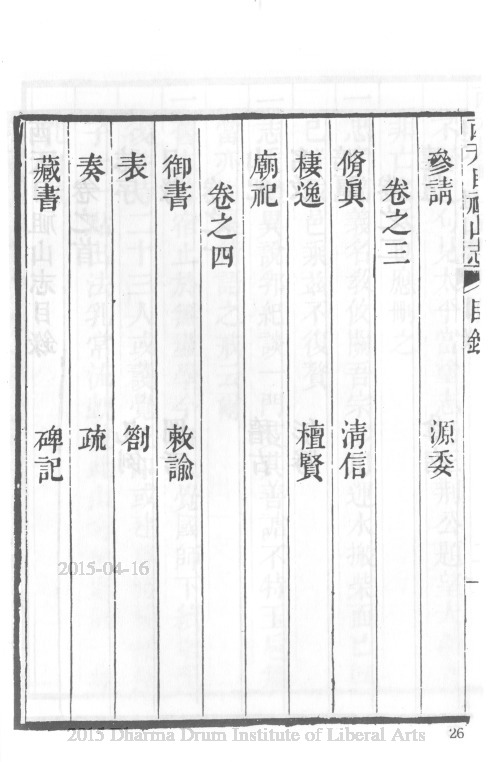 西天目祖山志 目錄
參請 源委
卷之三
脩眞 清信
棲逸 檀賢
廟祀
卷之四
御書 敕諭
表 劄
奏 疏
藏書 碑記
2015-04-16
2015 Dharma Drum Institute of Liberal Arts
26